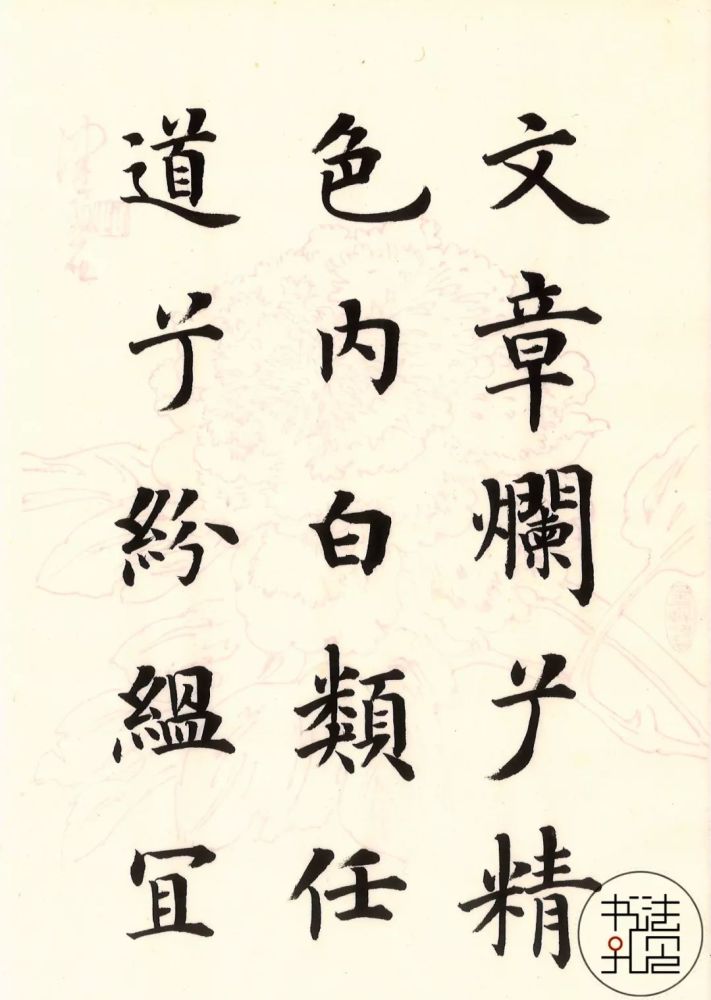 文章爛兮精
色内白類任
道兮紛縕冝
书法